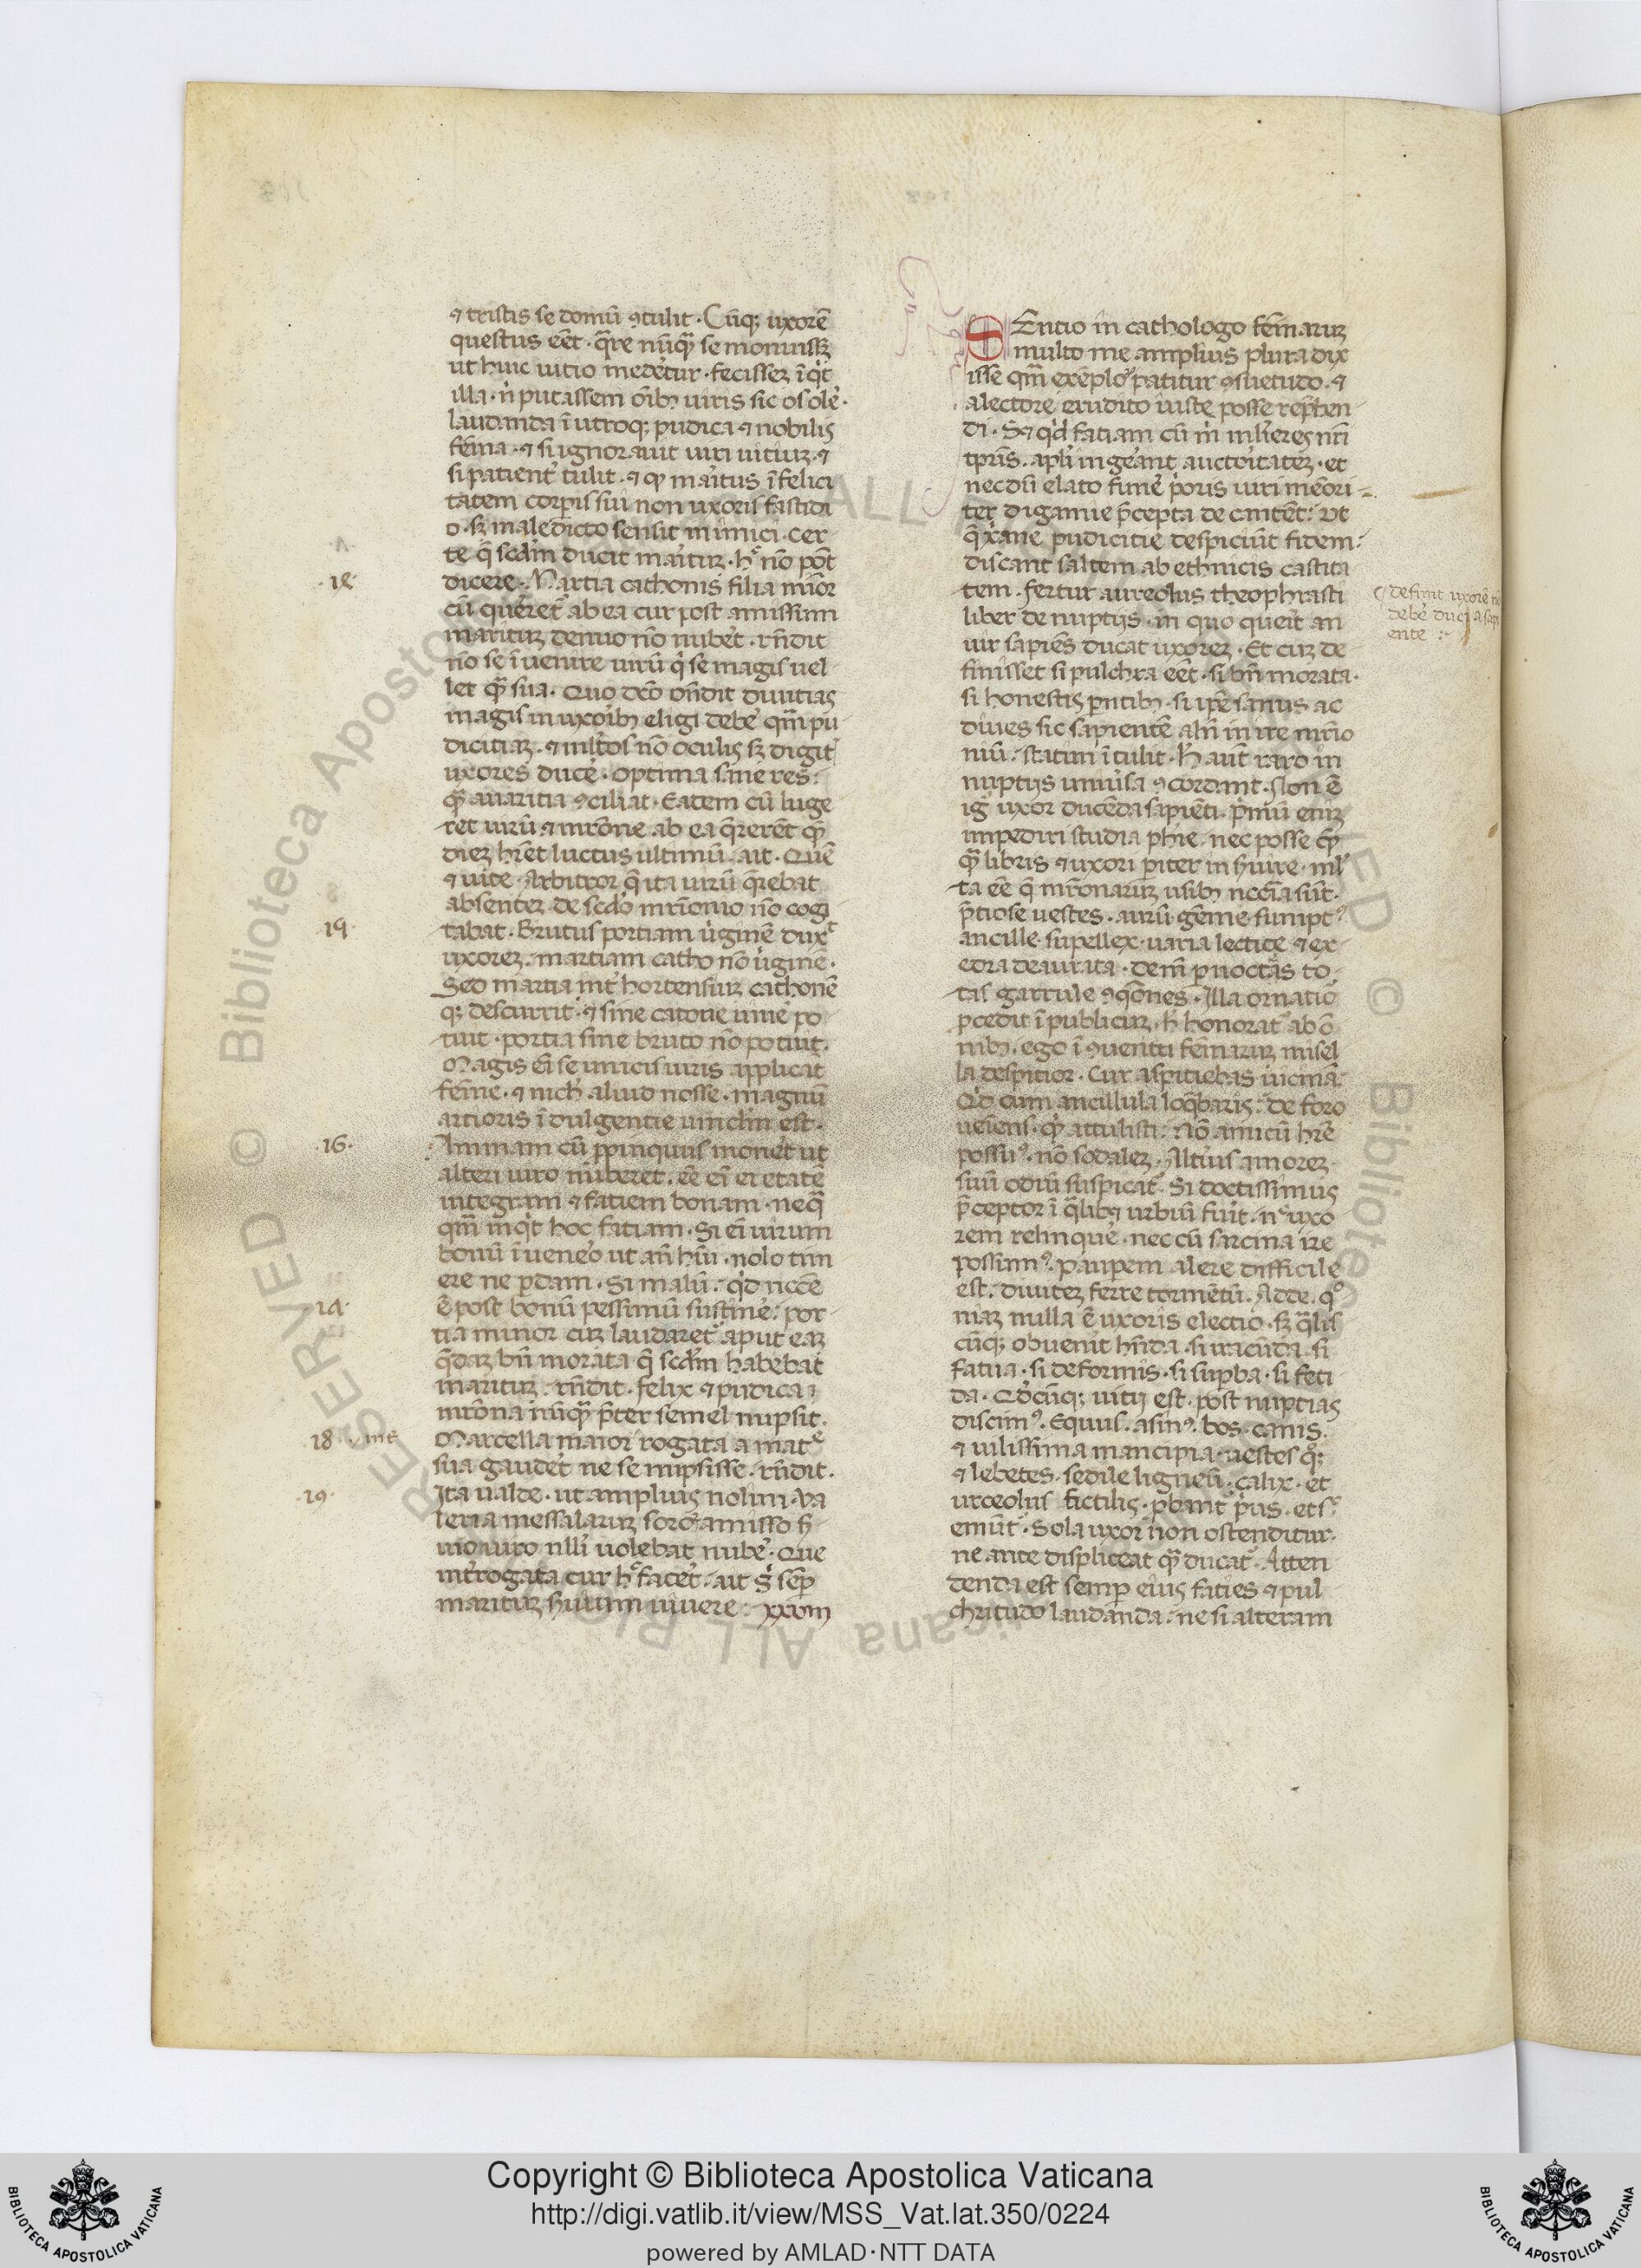 ⁊ tristis se domū ꝯtulit · Cūq; uxorē
questus eēt · q̄re nūq̄ se monuissꝫ
ut huic uitio medet̄ur · fecissez īq͛t
illa · n͛ putassem oīb; uiris sic os olē ·
laudanda ī utroq; pudica ⁊ nobilis
fēina · ⁊ si ignorauit uiri uitiuꝫ · ⁊
si patient͛ tulit · ⁊ ꝙ mar͛itus īfelici
tatem corp̄is sui non uxoris fastidi
o · sꝫ maledicto sensit inimici · Cer
te q̄ scd̄m ducit mar͛ituꝫ · h͛ nō pōt
dicere · Martia cathonis filia mīor
cū quer͛et͛ ab ea cur post amissum
marituꝫ denuo nō nub͛et · rn̄dit
nō se īuenire uirū q͛ se magis uel
let q̄ sua · Quo dc̄o on̄dit diuitias
magis in uxoīb; eligi deb͛e qm̄ pu
dicitiaꝫ · ⁊ ml̄tos nō oculis sꝫ digit͛
uxores duc͛e · optima sane res ·
q̄ auaritia ꝯciliat · Eadem cū luge
ret uirū ⁊ mr̄one ab ea q̄rerēt q̄
dieꝫ hr̄et luctus ultimū · ait · Quē
⁊ uite · Arbitror q̄ ita uirū q̄rebat
absenteꝫ de scd̄o mr̄ionio nō cogi
tabat · Brutus portiam u͛ginē dux͛
uxoreꝫ · martiam catho nō u͛ginē ·
Sed martia int͛ hortensiuꝫ cathonē
q; descurrit · ⁊ sine catone uiu͛e po
tuit · portia sine bruto nō potuit ·
Magis ēi se unicis uiris applicat
fēine · ⁊ nich͛ aliud nosse · magnū
artioris īdulgentie uinclm̄ est ·
Aniniam cū p̱pinquus mon͛et ut
alteri uiro nuberet · eē ēi ei etatē
integram ⁊ fatiem bonam · neq̄
qm̄ inq͛t hoc fatiam · Si ēi uirum
bonū īuen͛o ut an̄ hūi · nolo tim
ere ne p̱dam · Si malū · qd̄ nccē
ē post bonū pessimū sustin͛e · por
tia minor cuꝫ laudaret͛ aput eaꝫ
q̄daꝫ bn̄ morata q̄ scd̄m habebat
marituꝫ · rn̄dit · felix ⁊ pudica
mr̄ona nūq̄ p̄ter semel nupsit ·
Marcella maior rogata a mat͛e
sua gaud͛et ne se nupsisse · rn̄dit ·
Ita ualde · ut amplius nolim · Va
leria messalaruꝫ soror͛ amisso s͛
uio uiro nll͛i uolebat nub͛e · Que
int͛rogata cur h͛ fac͛et · ait s͛ semp̱
marituꝫ s͛uium uiuere ·
·18·
·19·
·16·
·1a·
18 · mt̄
·19·
SEntio in cathologo fēinaruꝫ
multo me amplius plura dix
isse qm̄ exēploꝝ patitur ꝯsuetudo · ⁊
a lectore erudito iuste posse rep̄hen
di · Sꝫ qd̄ fatiam cū m͛ ml̄ieres nr̄i
tp̄ris · apl͛i inger͛ant auctor͛itateꝫ · et
necdū elato funer͛e p͛oris uiri mēori
ter digamie p̄cepta decantēt · Vt
q̄ xr͛ane pudicitie despiciūt fidem ·
discant saltem ab ethnicis castita
tem · fertur aureolus theophrasti
liber de nuptijs · in quo quer͛it an
uir sapiēs ducat uxoreꝫ · Et cuꝫ de
finisset si pulchra eēt · si bn̄ morata ·
si honestis pn̄tib; · si ip̄e sanus ac
diues sic sapientē aln̄ inire mr̄io
niū · statim ītulit · h͛ aūt raro in
nuptijs uniu͛sa ꝯcordant · Non ē
ig͛ uxor ducēda sapiēti · p͛mū eniꝫ
impediri studia ph̄ie · nec posse q̄
q̄ libris ⁊ uxori piter ins͛uire · ml͛
ta eē q̄ mr̄onaruꝫ usib; nccīa sūt ·
p̄tiose uestes · aurū · gēme · sumpt͛
ancille · supellex · uaria lectice ⁊ ex
edra deaurata · dein̄ p̱ noctes to
tas garrule ꝯq̄ones · Illa ornatior͛
p̱cedit ī publicuꝫ · h͛ honorat͛ ab o
nib; · ego ī ꝯuentu fēinaruꝫ misel
la despitior · Cur aspitiebas uicinā ·
Qd̄ cum ancillula loq̄baris · de foro
ueiens · q͛ attulisti · Nō amicū hr̄e
possu᷒ · nō sodaleꝫ · Alt͛ius amoreꝫ
suū odiū suspicat͛ · Si doctissimus
p̄ceptor ī q̄lib; urbiū fuit͛ · n͛ uxo
rem relinquer͛e · nec cū sarcina ire
possum᷒ · paup̱em alere difficile
est · diuiteꝫ ferre tormētū · Adde · q͛
niaꝫ nulla ē uxoris electio · sꝫ q̄lis
cūq; obuenit͛ hn̄da · si iracūda · si
fatua · si deformis · si sup̱ba · si feti
da · Qd̄cūq; uitij est · post nuptias
discim᷒ · Equus · asin᷒ · bos · canis ·
⁊ uilissima mancipia · uestes q͛;
⁊ lebetes · sedile ligneū · calix · et
urceolus fictilis · p̱bant͛ p͛us · et s͛
emūt͛ · Sola uxor non ostenditur ·
ne ante displiceat q̄ ducat͛ · Atten
denda est semp̱ eius faties ⁊ pul
chritudo laudanda · ne si alteram
definit uxorē nō
deb͛e duci a sapi
ente :-
Copyright © Biblioteca Apostolica Vaticana
http://digi.vatlib.it/view/MSS_Vat.lat.350/0224
powered by AMLAD·NTT DATA
BIBLIOTECA APOSTOLICA VATICANA
BIBLIOTECA APOSTOLICA VATICANA